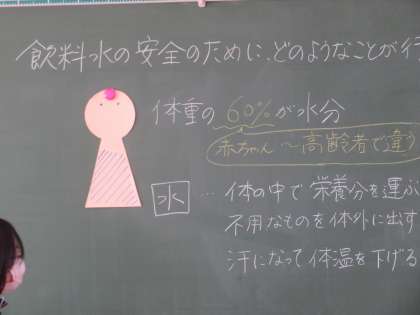 飲料水の安全のために、どのようなことが行
体重の60%が水分
赤ちゃん～高齢者で違う
水 … 体の中で栄養分を運ぶ
不用なものを体外に出す
汗になって体温を下げる